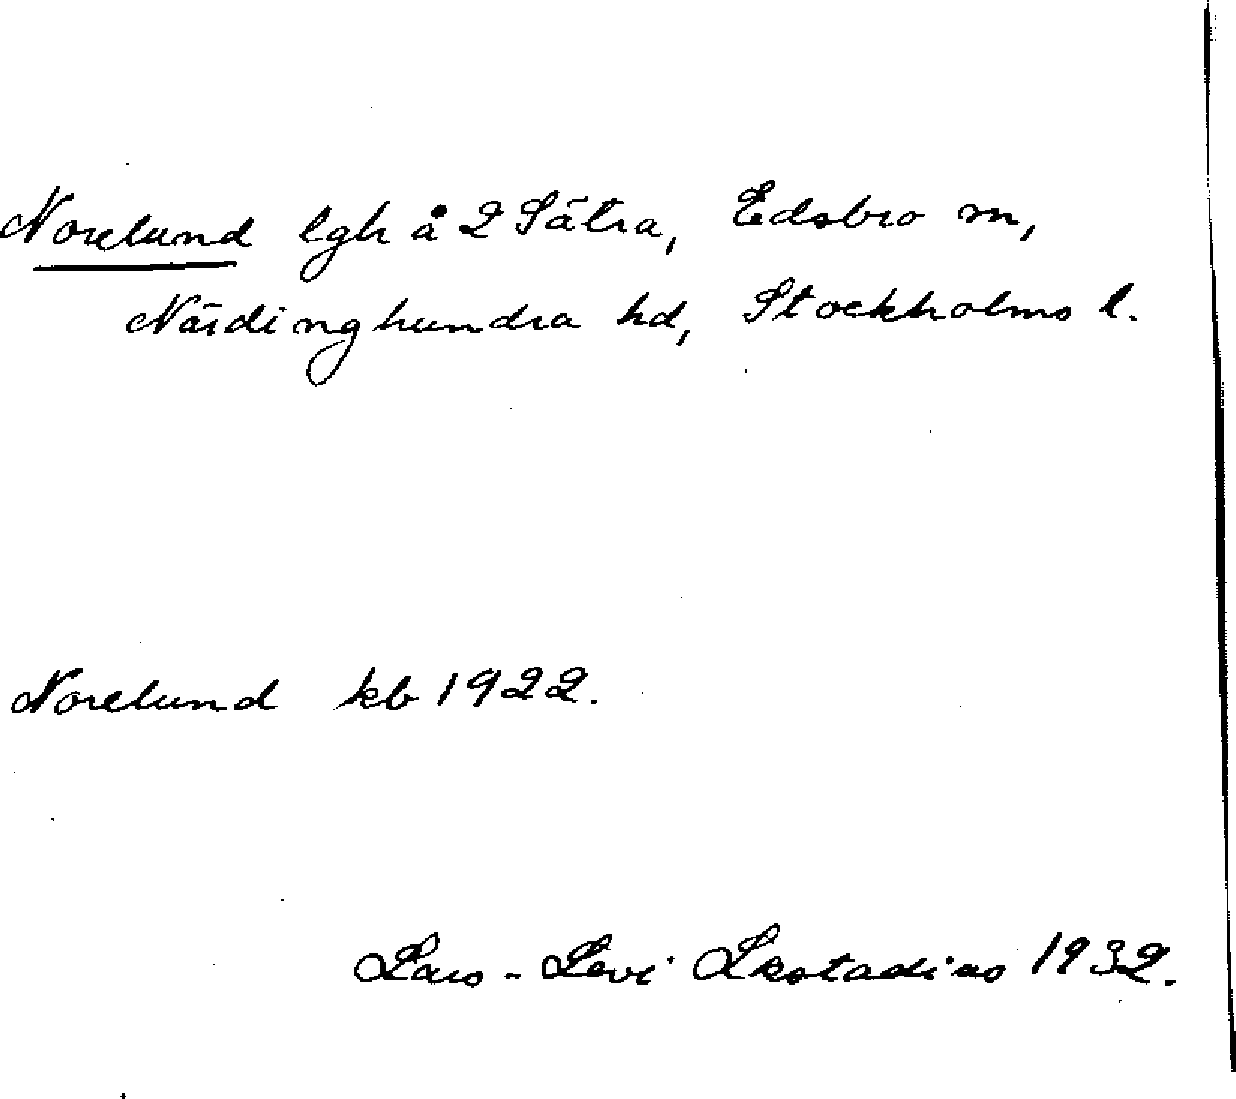 Norelund lgh å 2 Sätra, Edsbro sn,
Närdinghundra hd, Stockholms l.
Norelund kb 1922.
Lars-Levi Læstadius 1932.